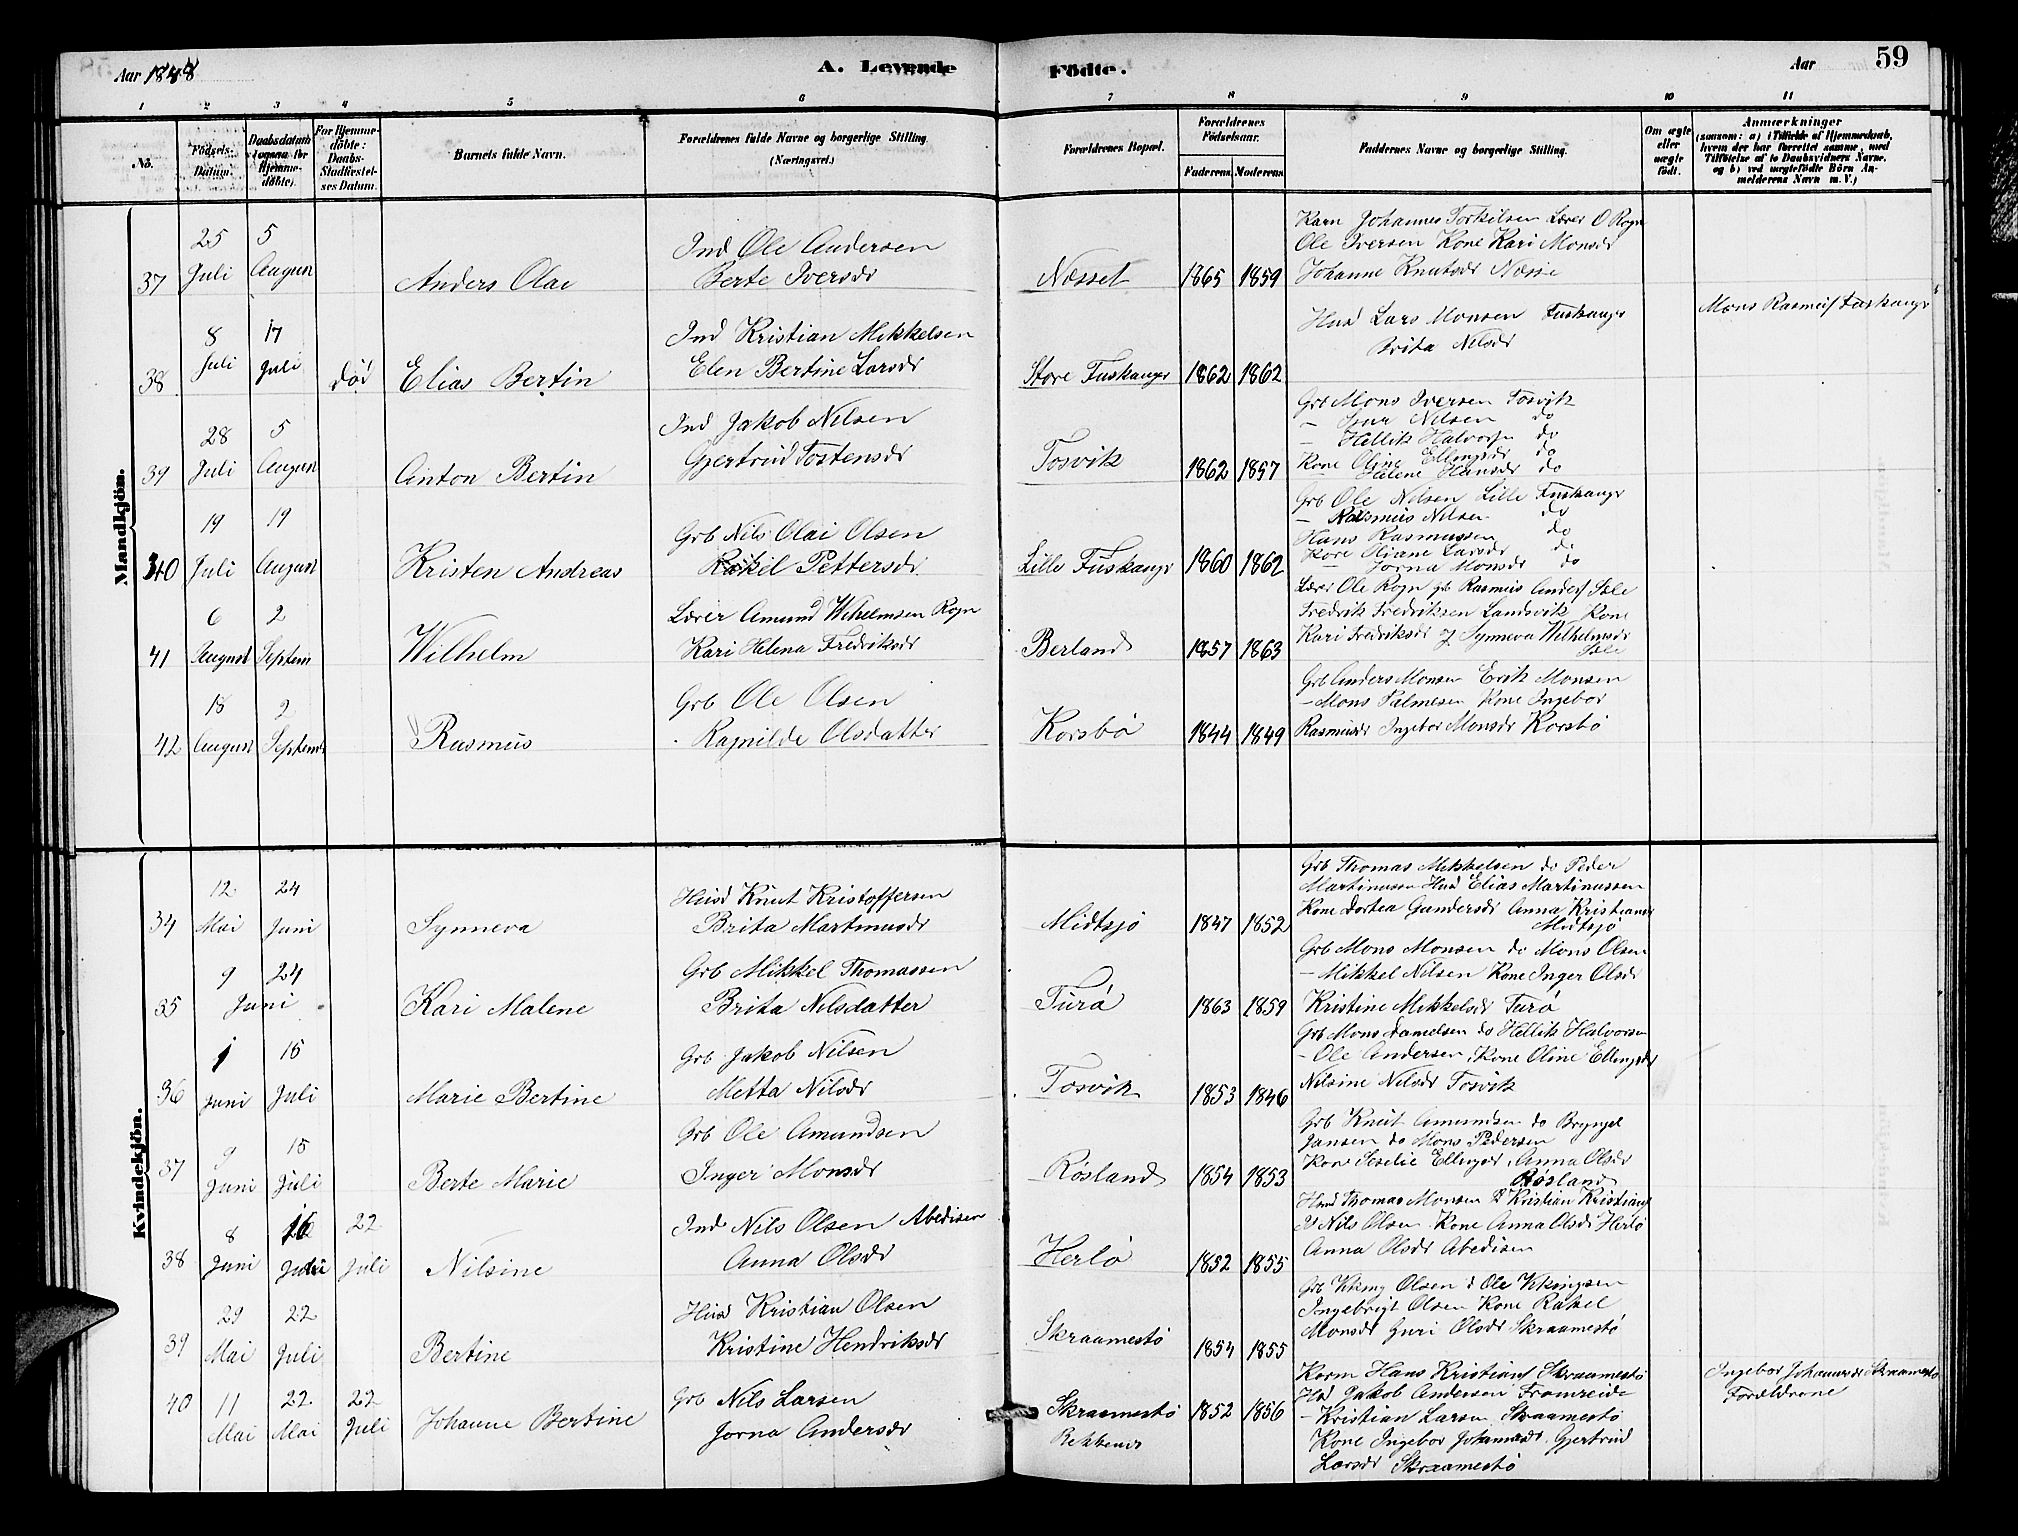 Aar 1888
A. Levende
Födte.
Aar
59
1 2 3 4 5 6 7 8 9 10 11
No.
Födsels-
Datum.
Daabsdatum
(ogsaa for
Hjemme-
döbte).
For Hjemme-
döbte:
Daabs-
Stadfæstel-
ses Datum.
Barnets fulde Navn.
Forældrenes fulde Navne og borgerlige Stilling.
(Næringsvei.)
Forældrenes Bopæl.
Forældrenes
Födselsaar.
Faderens Moderens
Faddernes Navne og borgerlige Stilling.
Om ægte
eller
uægte
födt.
Anmærkninger
(saasom: a) i Tilfælde af Hjemmedaab,
hvem der har forrettet samme, med
Tilföielse af to Daabsvidners Navne,
og b) ved uægtefödte Börn An-
melderens Navn m. V.)
Mandkjön.
37
25
Juli
5
August
Anders Olai
Ind Ole Andersen
Berte Iversdr
Nesset
1865 1859
Johannes Torkilsen Lærer O Rogn
Ole Iversen Kone Kari Monsdr
Johanne Knutsdr
38
8
Juli
17
Juli
död
Elias Bertin
Ind Kristian Mikkelsen
Elen Bertine Larsdr
Store Fuskanger
1862 1862
Husd Lars Monsen Fuskanger
Brita Nilsdr
Mons Rasmus Fuskanger
39
28
Juli
5
August
Anton Bertin
Ind Jakob Nilsen
Gjertrud Tostensdr
Tosvik
1862 1857
Grb Mons Iversen Tosvik
Nilsen do
- Hellik Halvors do
Kone Oline Ellingsdr do
- Helene Hansdr do
40
19
Juli
19
August
Kristen Andreas
Grb Nils Olai Olsen
Rakel Pettersdr
Lille Fuskanger
1860 1862
Grb Ole Nilsen Lille Fuskanger
- Rasmus Nilsen do
Hans Rasmussen do
Kone Oliane Larsdr do
- Jorna Monsdr do
41
6
August
2
Septem
Wilhelm
Lærer Amund Wilhelmsen Rogn
Kari Helena Fredriksdr
Berland
1857 1863
Lærer Ole Rogn grb Rasmus Anders
Fredrik Fredriksen Landsvik Kone
Kari Fredriksdr og Synneva Wilhelmsdr
42
18
August
2
Septembr
Rasmus
Grb Ole Olsen
Ragnilde Olsdatter
Korsbö
1844 1849
Grb Anders Monsen Erik Monsen
- Mons Palmesen Kone Ingebor
Rasmusdr Ingebor Monsdr Korsbö
Kvindekjön.
34
12
Mai
24
Juni
Synneva
Husd Knut Kristoffersen
Brita Martinusdr
Midtsjö
1847 1852
Grb Thomas Mikkelsen do Peder
Martinussen Husd Elias Martinussen
Kone Dortea Gundersdr Anna Kristiansdr
Midtsjö
35
9
24
Juni
Kari Malene
Grb Mikkel Thomassen
Brita Nilsdatter
Turö
1863 1859
Grb Mons Monsen do Mons Olsen
- Mikkel Nilsen Kone Inger Olsdr
Kristine Mikkelsdr Turö
36
1
Juni
15
Juli
Marie Bertine
Grb Jakob Nilsen
Metta Nilsdr
Tosvik
1853 1846
Grb Mons Danielsen do Hellik Halvorsen
- Ole Andersen, Kone Oline Ellingsdr
Nilsine Nilsdr Tosvik
37
9
Juni
15
Juli
Berte Marie
Grb Ole Amundsen
Inger Monsdr
Rösland
1854 1853
Grb Knut Amundsen do Bryngel
Jansen do Mons Pedersen
Kone Seselie Ellingsdr, Anna Olsdr
Rösland
38
8
Juni
16
Juli
22
Juli
Nilsine
Ind Nils Olsen Abedisen
Anna Olsdr
Herlö
1852 1855
Husd Thomas Monsen d Kristian Kristians
d Nils Olsen Kone Anna Olsdr Herlö
Anna Olsdr Abedisen
39
29
Mai
22
Juli
Bertine
Husd Kristian Olsen
Kristine Hendriksdr
Skraamestö
1854 1855
Grb Viking Olsen d Ole Vikingsen
Ingebrigt Olsen Kone Rakel
Monsdr Guri Olsdr Skraamestö
40
11
Mai
22
Mai
22
Juli
Johanne Bertine
Grb Nils Larsen
Jorna Andersdr
Skraamestö
1852 1856
Hans Kristians Skraamestö
Husd Jakob Andersen Fromreide
- Kristian Larsen Skraamestö
Kone Ingebor Johannesdr. Gjertrud
Larsdr Skraamestö
Ingebor Johannesdr Skraamestö
Forældrene